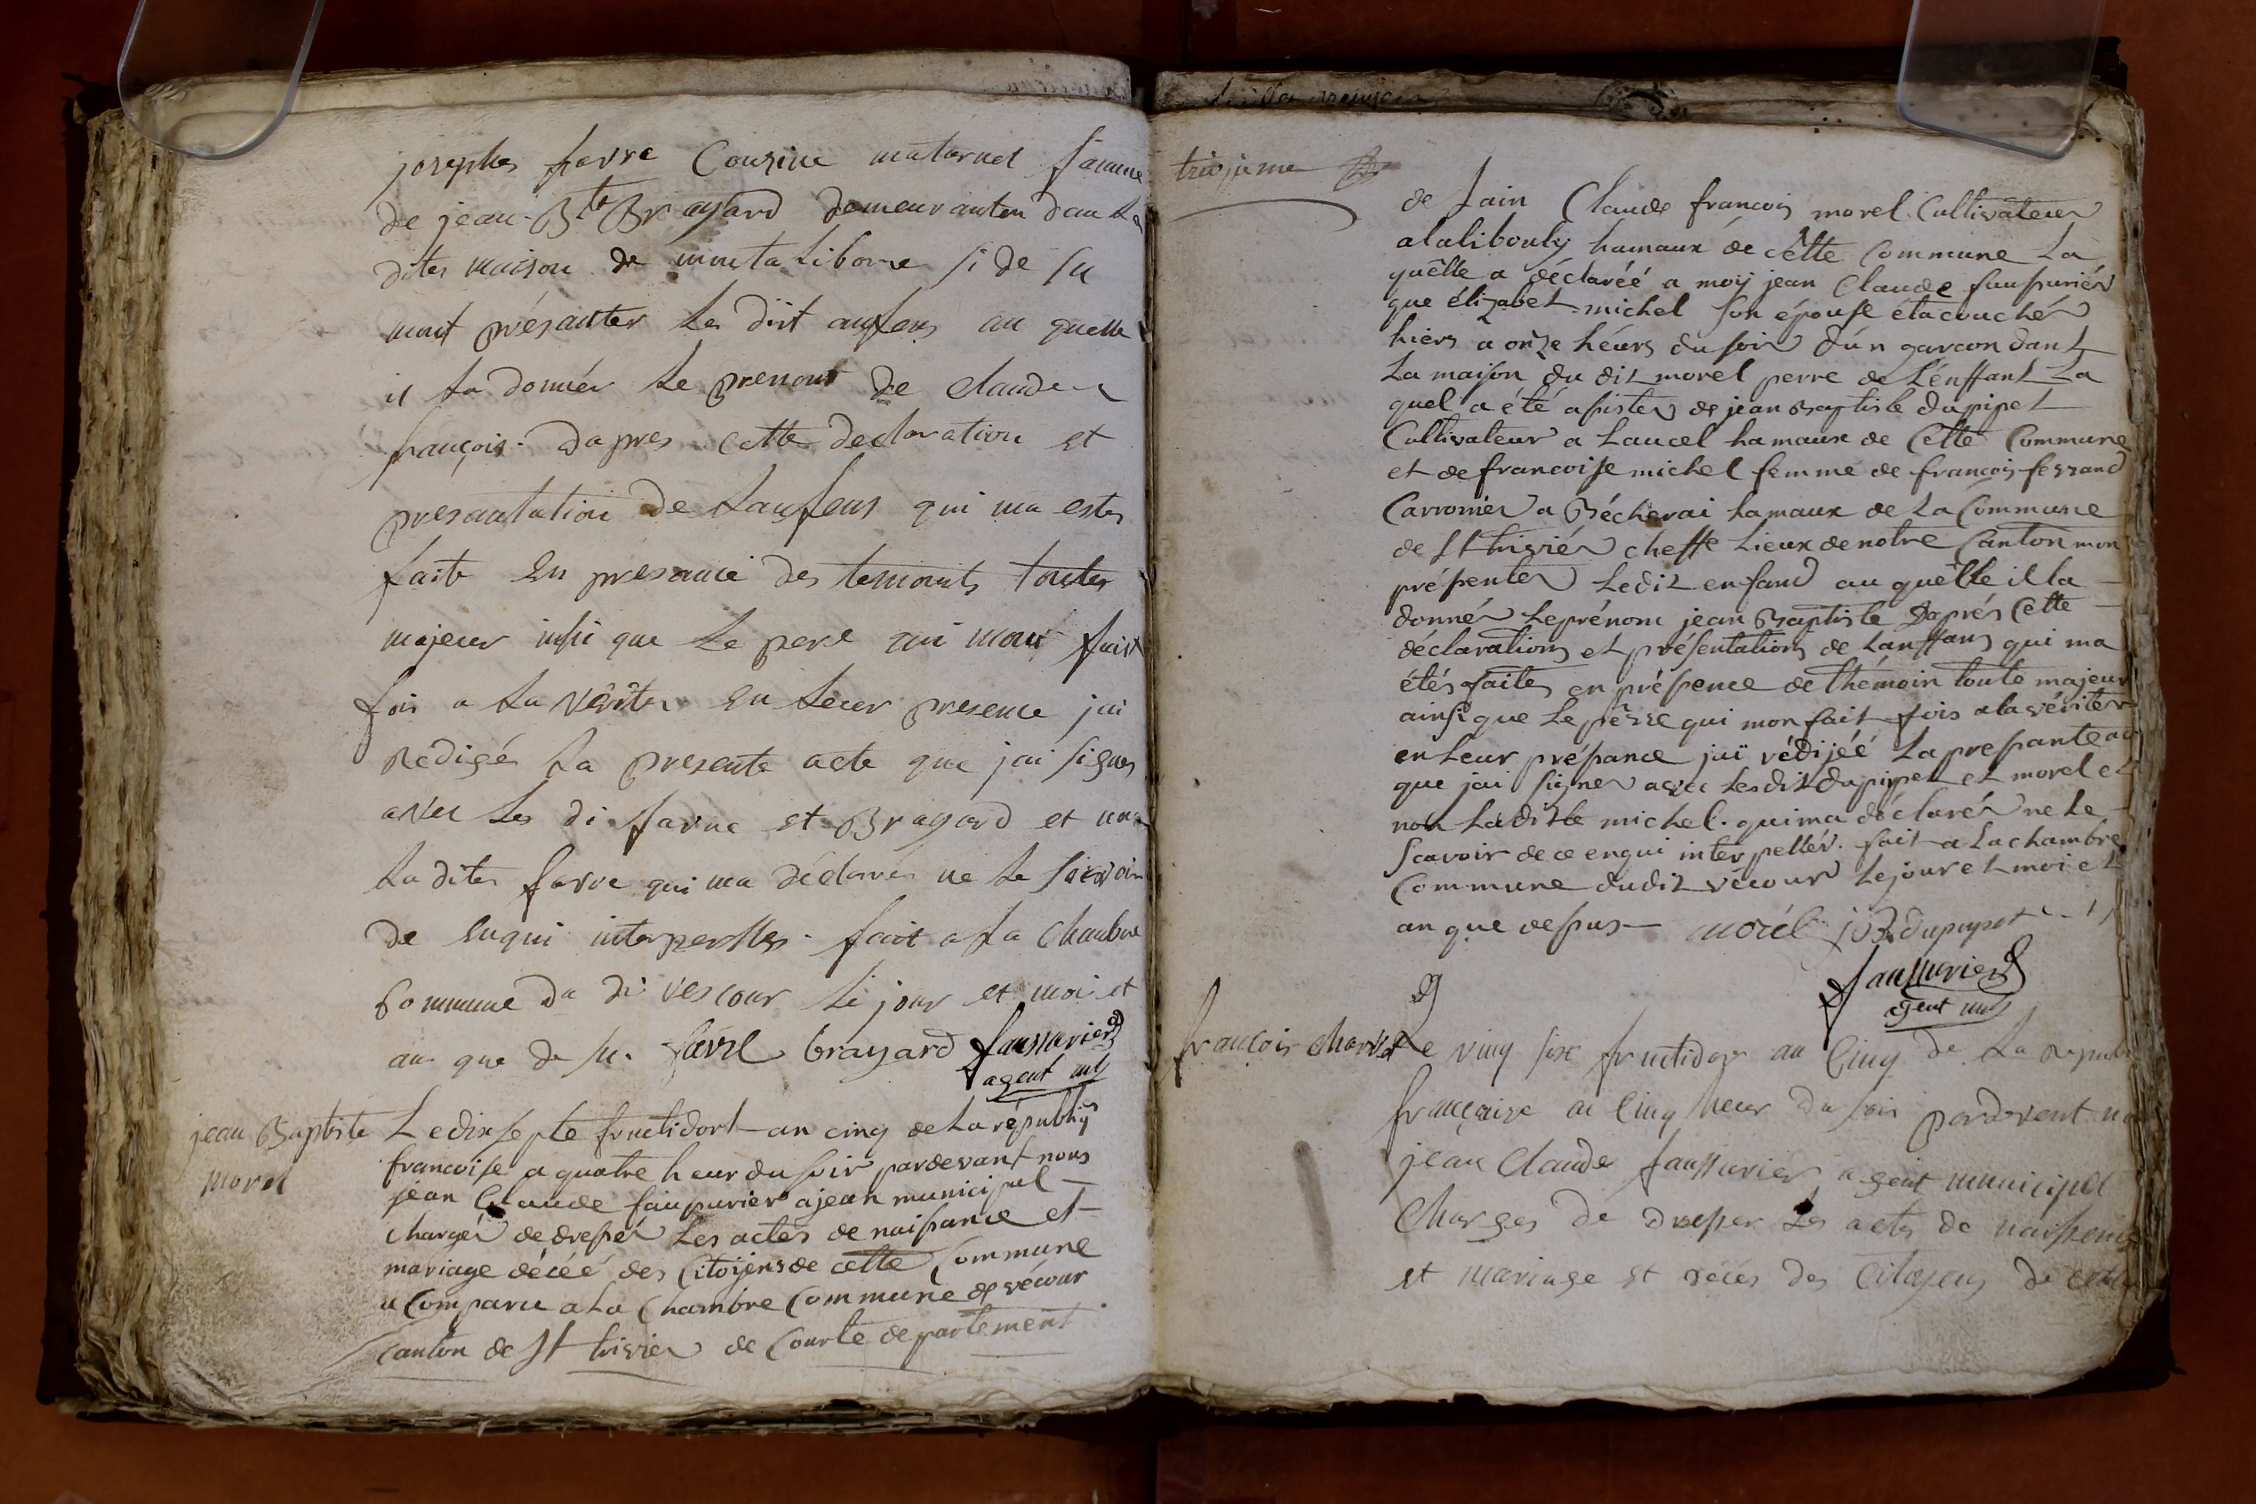 josephes favre Cousine maternel famme
de jean Bte Brayard demeuranten dan la
dites maison de minuta libore si de su
mont présanter Les diit anfens au quelle
il la donnér Le prenont de claude
françois. Dapres cette declaration et
presantation De Lanfens qui ma estes
faite En presance des temonts toutes
majeur insi que Le pere qui mont fait
foi a La vérites En Leur presence jai
Redigés La presente acte que jai signés
avec Les di favre et Brayard et non
La dites favre qui ma déclarés ne Le scavoir
De Enqui interpersller. fait a La Chambre
Commune Du di vescour Le jour et moi et
an que de su. favre brayard faussurier
agent mul
jean Baptiste
morel
Le dix septe fructidort an cinq de La républiq
francoise a quatre heur du soir pardevant nous
jean Claude faussurier ajean municipal
chargér de dressér Les actes de naissance et
mariage décéé des Citoijens de cette Commune
a Comparu a La Chambre Commune de vécour
Canton de St trivier de Courte departement
troijeme
de Lain Claude francois morel Cultivateur
alalibouly hamaux de cêtte Commune La
quêlle a déclaréé a moÿ jean Claude faussuriér
que élizabet michel son épouse étacouchér
hiers a onze héurs du soir dún garcon dant
La maison du dit morel perre de Lénffant La
quel a été assister de jean Baptiste dupipet
Cultivateur a Laucel hamaux de Cette Commune
et de francoise michel femme de francois ferrand
Carronier a Bécherai hamaux de La Commune
de St triviér cheffe Lieux de notre Canton mon
présenter Ledit enfand au quêlle il la
donnér Leprénom jean Baptiste Daprés Cette
déclarations et présentations de Lanffans qui ma
étés faites en présence de thémoin toute majeur
ainsi que Le pêrre qui mon fait fois a la vériter
en Leur présance jaï rédijéé La pressante ac
que jai signer avec Lesdit dupipet et morel et
non Laditte michel. quima déclarér ne Le
scavoir de ce enqui interpellér. fait a La chambre
Commune dudit vécour Le jour et moi et
an que dessus morel jB dupupet
faussurier
agent mul
françois Charvet
Le ving six fructidor an Cinq de La Repub
française a Cinq heur Du soir pardevent no
jean Claude faussurier agent municipal
Charges De dresser Les actes de naissence
et mariage et déces des Citoyens De cette